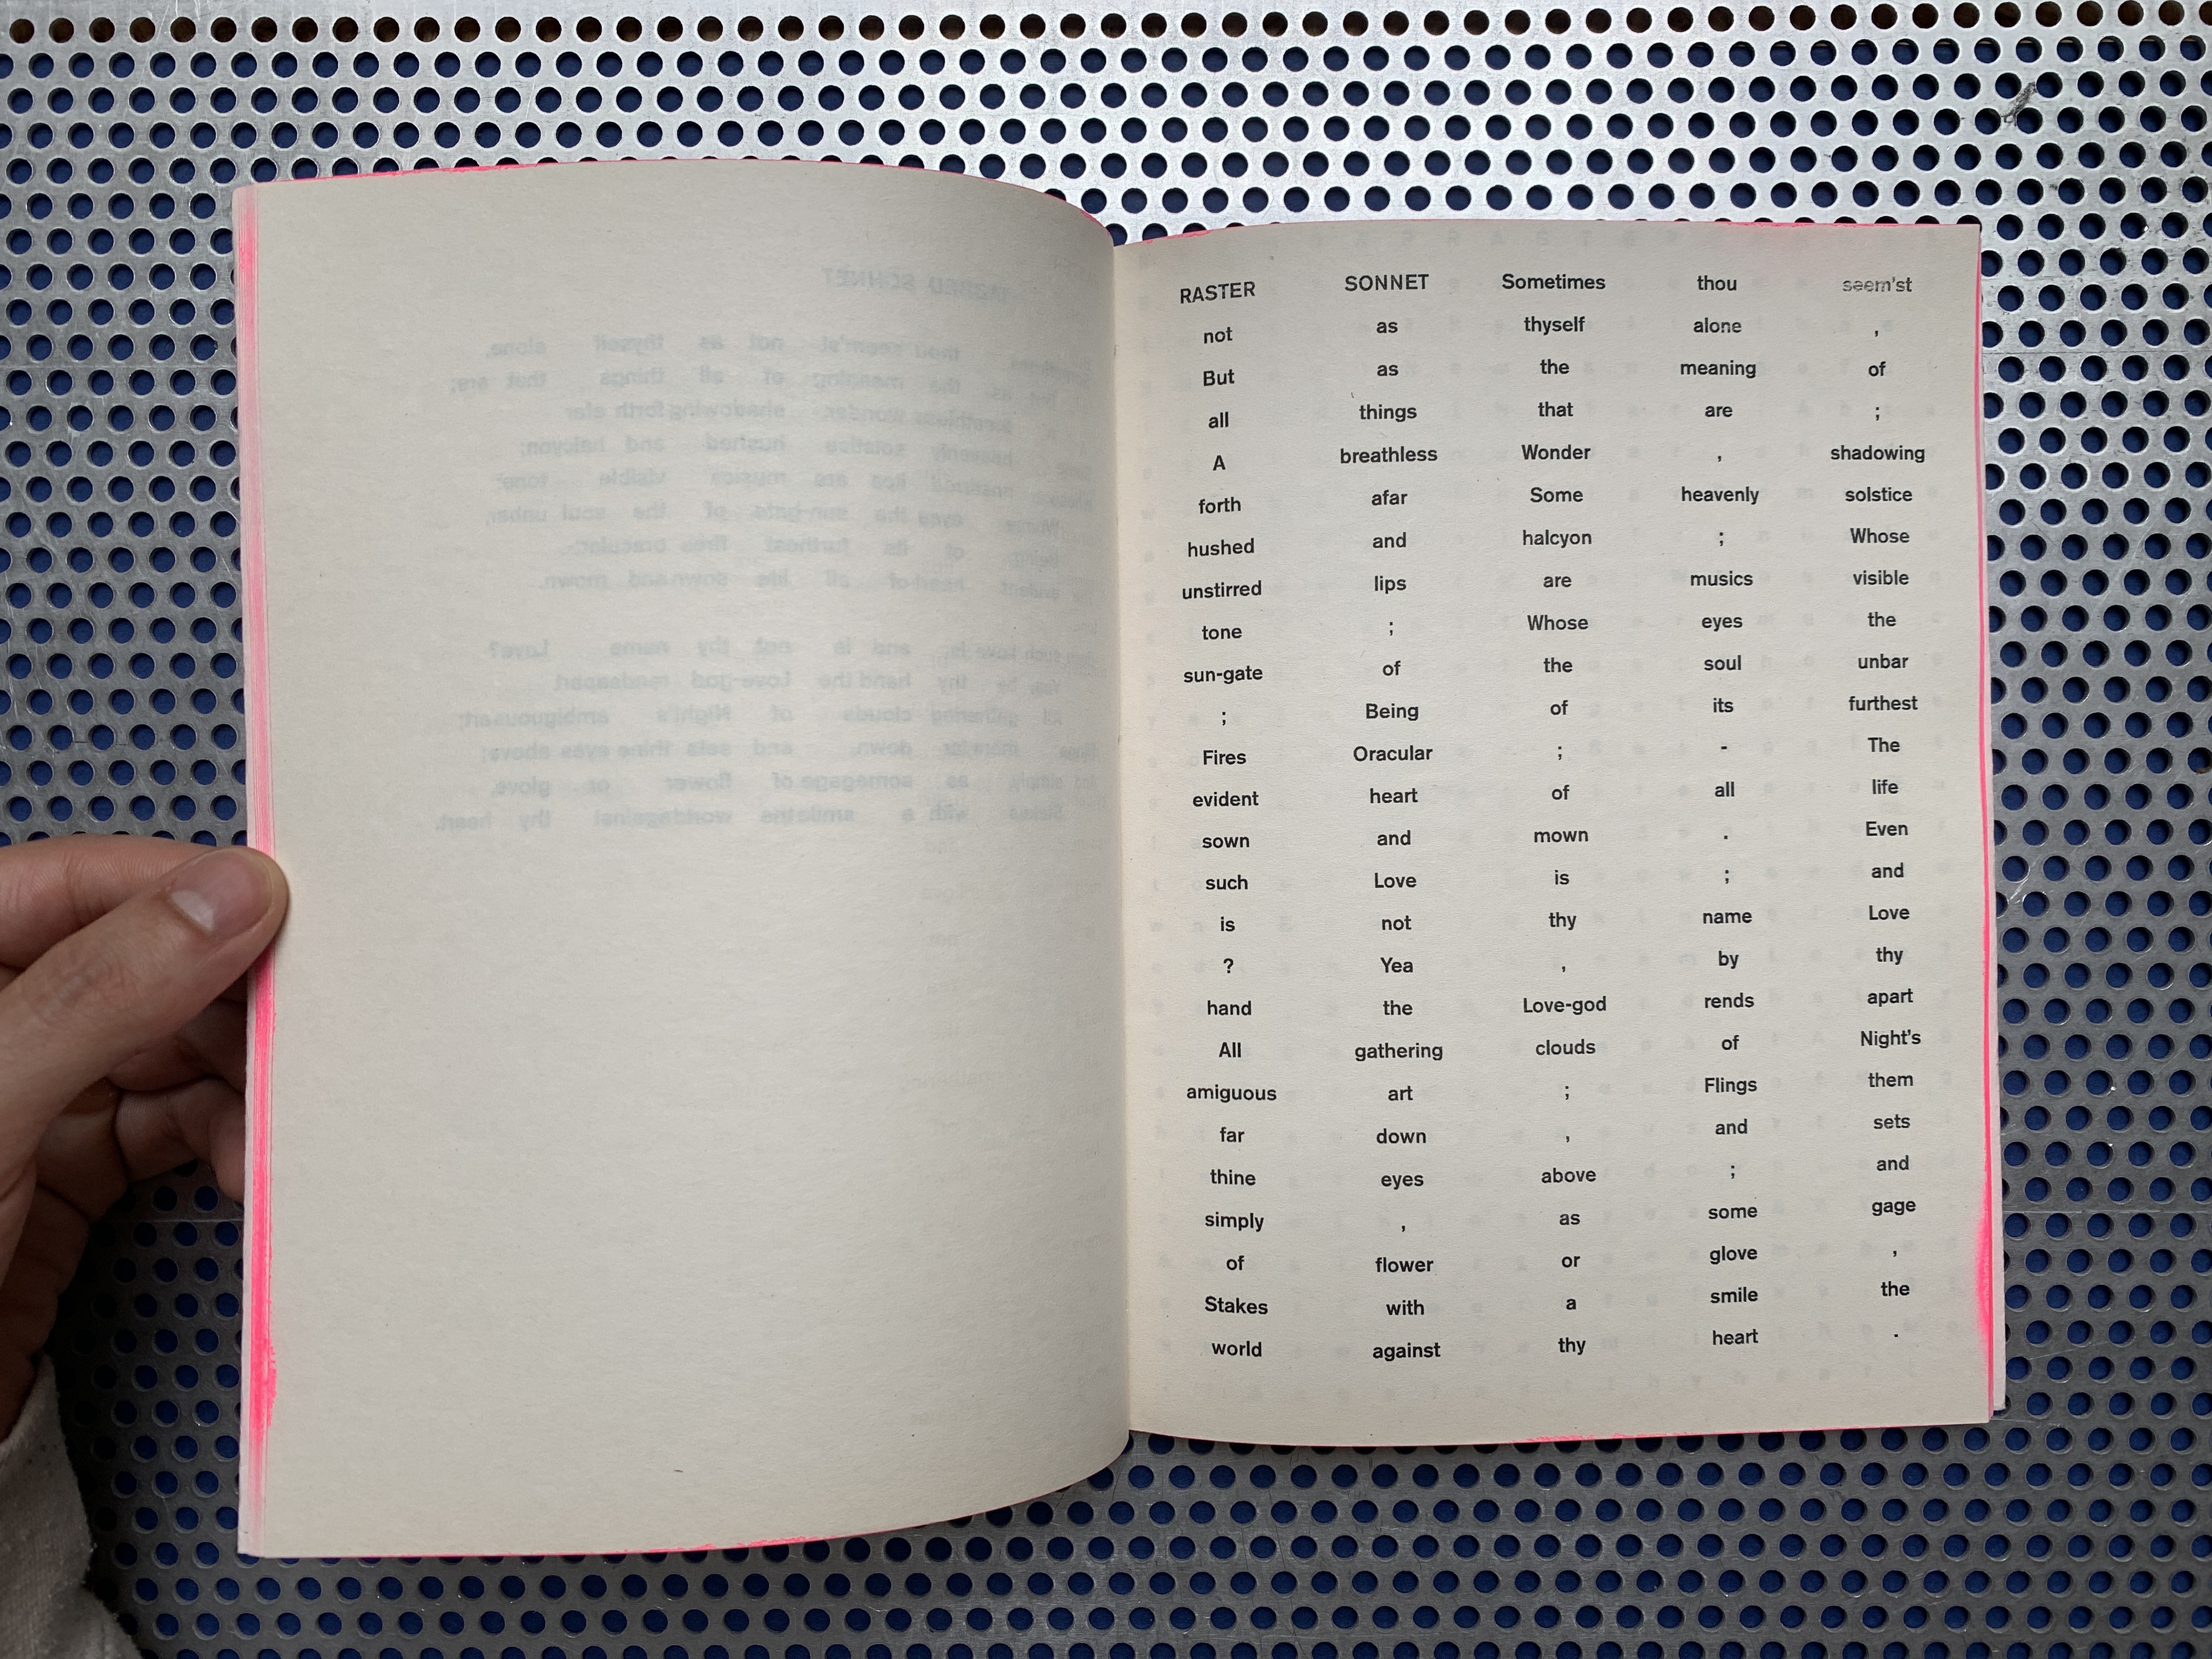 RASTER SONNET Sometimes thou seem'st
not as thyself alone ,
But as the meaning of
all things that are ;
A breathless Wonder , shadowing
forth afar Some heavenly solstice
hushed and halcyon ; Whose
unstirred lips are musics visible
tone ; Whose eyes the
sun-gate of the soul unbar
; Being of its furthest
Fires Oracular ; - The
evident heart of all life
sown and mown . Even
such Love is ; and
is not thy name Love
? Yea , by thy
hand the Love-god rends apart
All gathering clouds of Night's
amiguous art ; Flings them
far down , and sets
thine eyes above ; and
simply , as some gage
of flower or glove ,
Stakes with a smile the
world against thy heart .